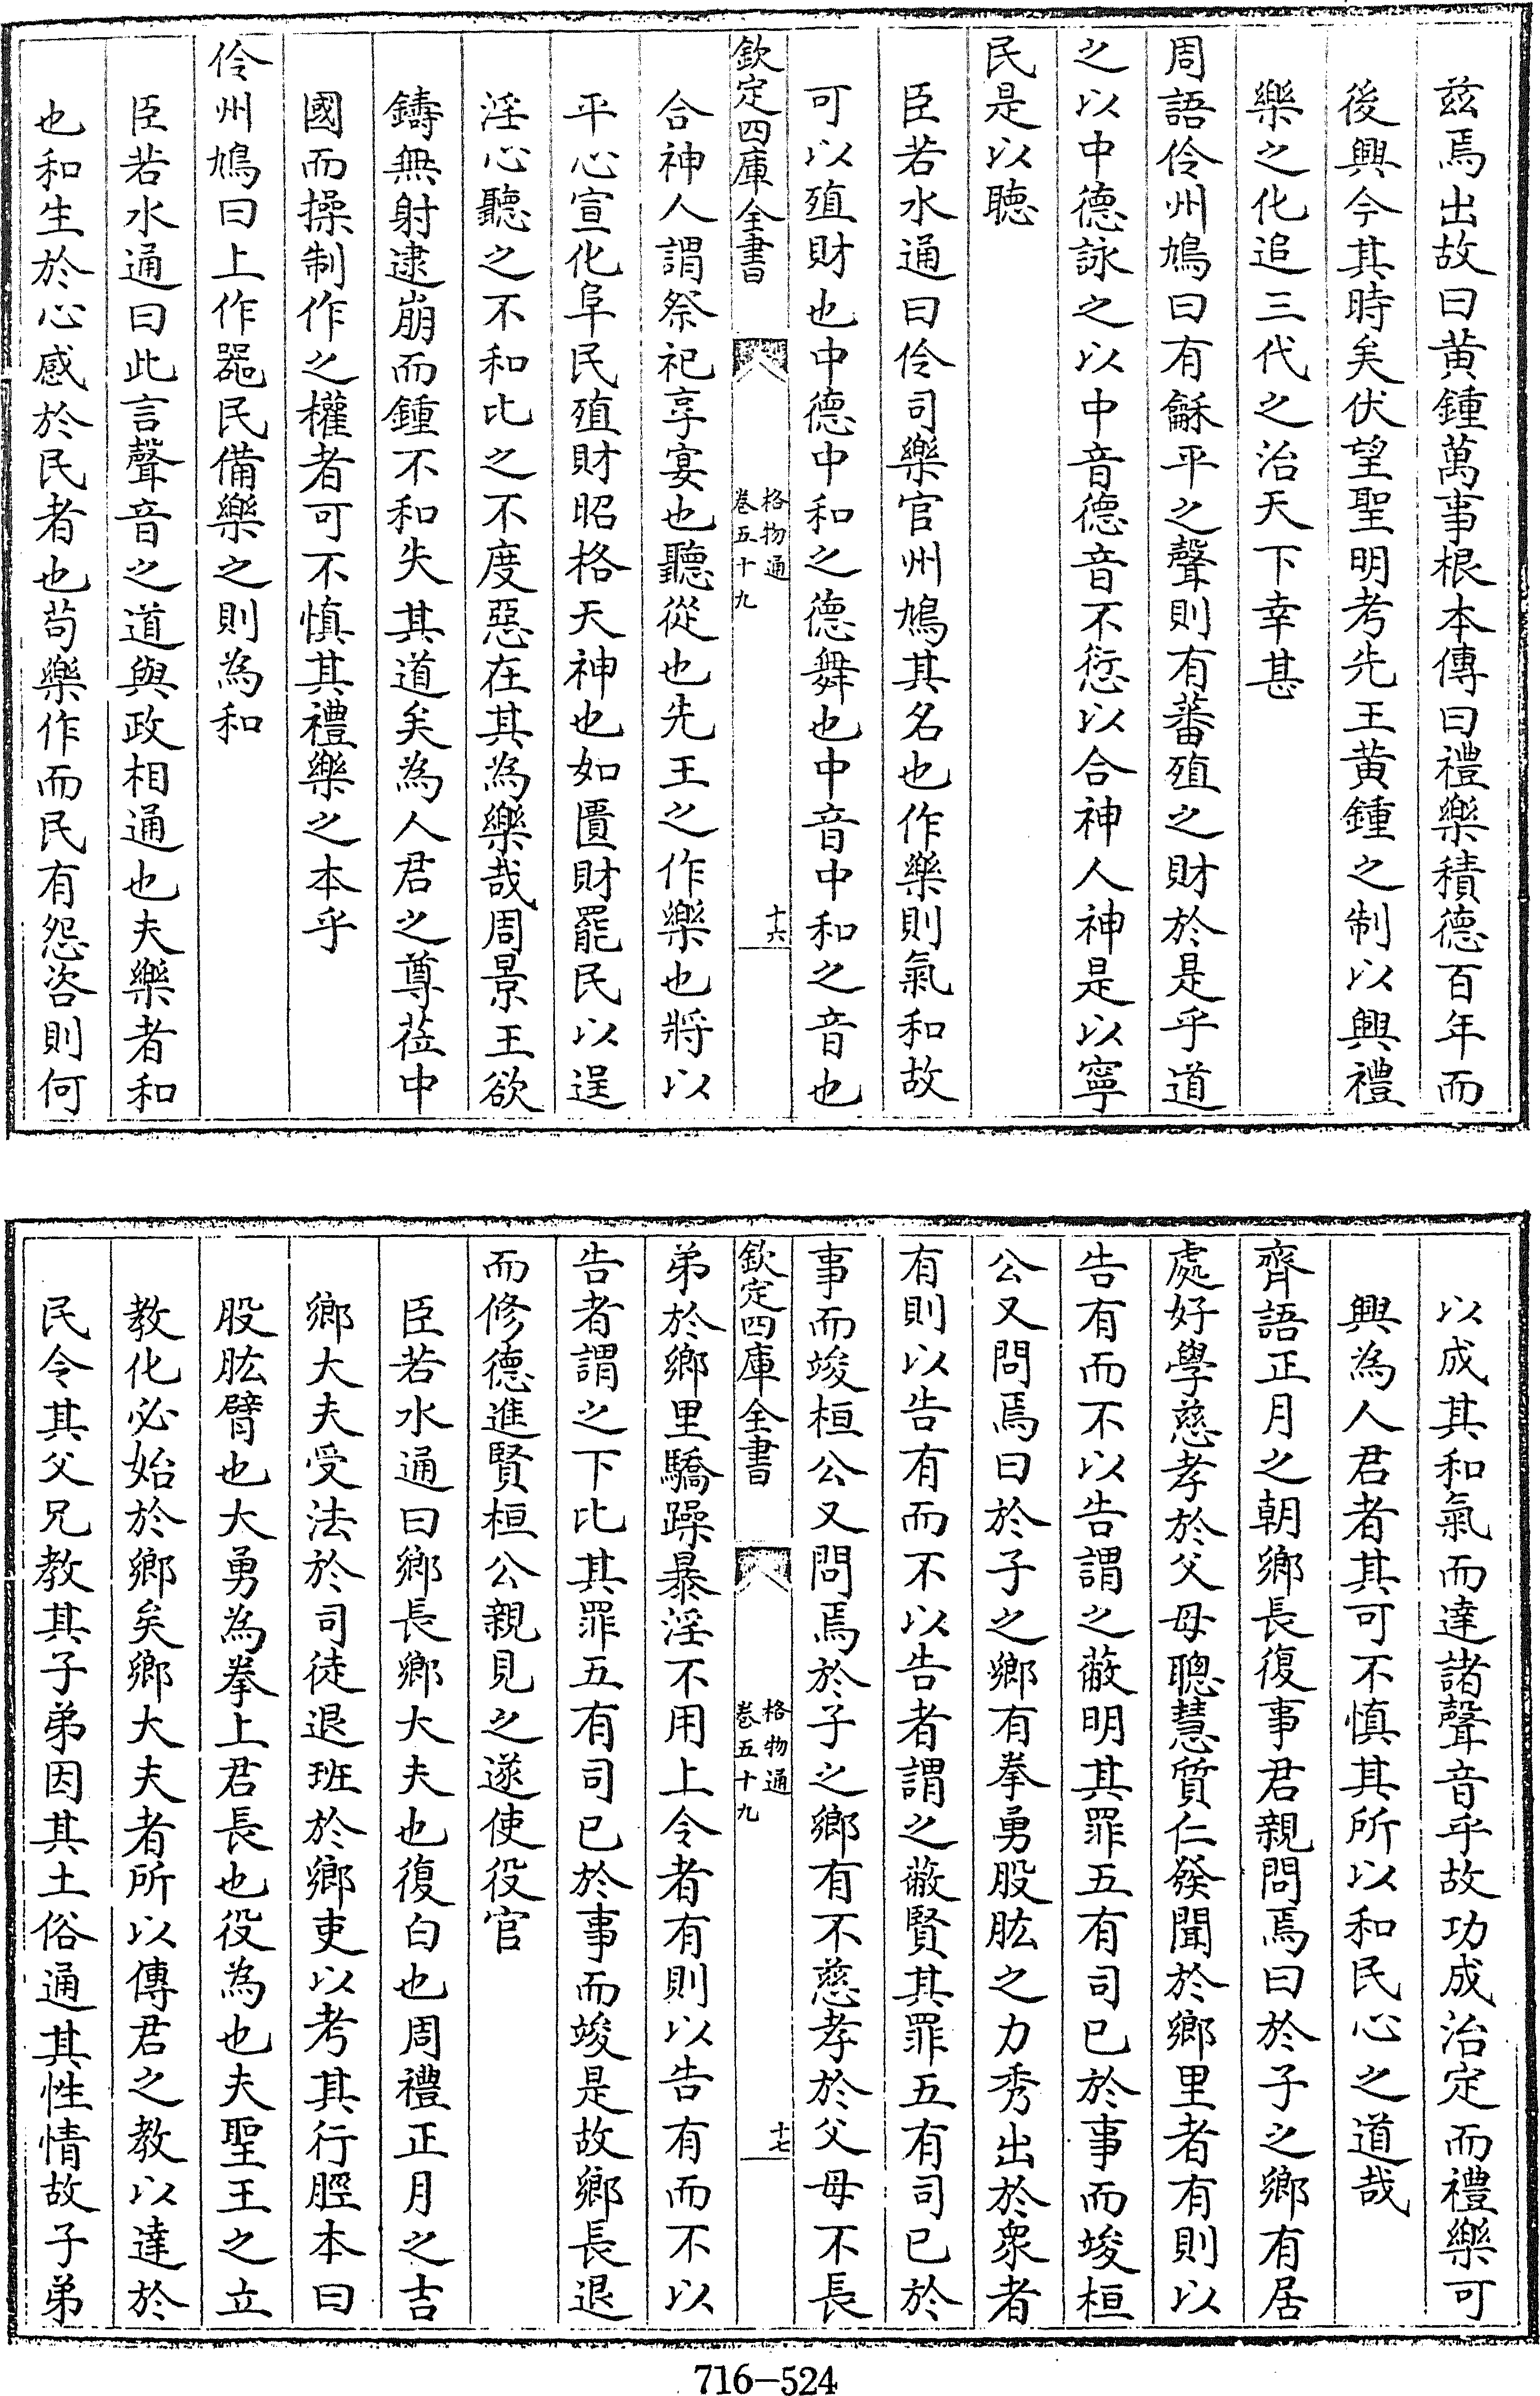 茲焉出故曰黄鍾萬事根本傳曰禮樂積德百年而
後興今其時矣伏望聖明考先王黄鍾之制以興禮
樂之化追三代之治天下幸甚
周語伶州鳩曰有龢平之聲則有蕃殖之財於是乎道
之以中德詠之以中音德音不愆以合神人神是以寧
民是以聽
臣若水通曰伶司樂官州鳩其名也作樂則氣和故
可以殖財也中德中和之德舞也中音中和之音也
欽定四庫全書
格物通
卷五十九
十六
合神人謂祭祀享宴也聽從也先王之作樂也將以
平心宣化阜民殖財昭格天神也如匱財罷民以逞
淫心聽之不和比之不度惡在其為樂哉周景王欲
鑄無射逮崩而鍾不和失其道矣為人君之尊莅中
國而操制作之權者可不慎其禮樂之本乎
伶州鳩曰上作噐民備樂之則為和
臣若水通曰此言聲音之道與政相通也夫樂者和
也和生於心感於民者也茍樂作而民有怨咨則何
以成其和氣而達諸聲音乎故功成治定而禮樂可
興為人君者其可不慎其所以和民心之道哉
齊語正月之朝鄉長復事君親問焉曰於子之鄉有居
處好學慈孝於父母聰慧質仁發聞於鄉里者有則以
告有而不以告謂之蔽明其罪五有司已於事而竣桓
公又問焉曰於子之鄉有拳勇股肱之力秀出於衆者
有則以告有而不以告者謂之蔽賢其罪五有司已於
事而竣桓公又問焉於子之鄉有不慈孝於父母不長
欽定四庫全書
格物通
卷五十九
十七
弟於鄉里驕躁暴淫不用上令者有則以告有而不以
告者謂之下比其罪五有司已於事而竣是故鄉長退
而修德進賢桓公親見之遂使役官
臣若水通曰鄉長鄉大夫也復白也周禮正月之吉
鄉大夫受法於司徒退班於鄉吏以考其行脛本曰
股肱臂也大勇為拳上君長也役為也夫聖王之立
教化必始於鄉矣鄉大夫者所以傳君之教以達於
民令其父兄教其子弟因其土俗通其性情故子弟
716-524